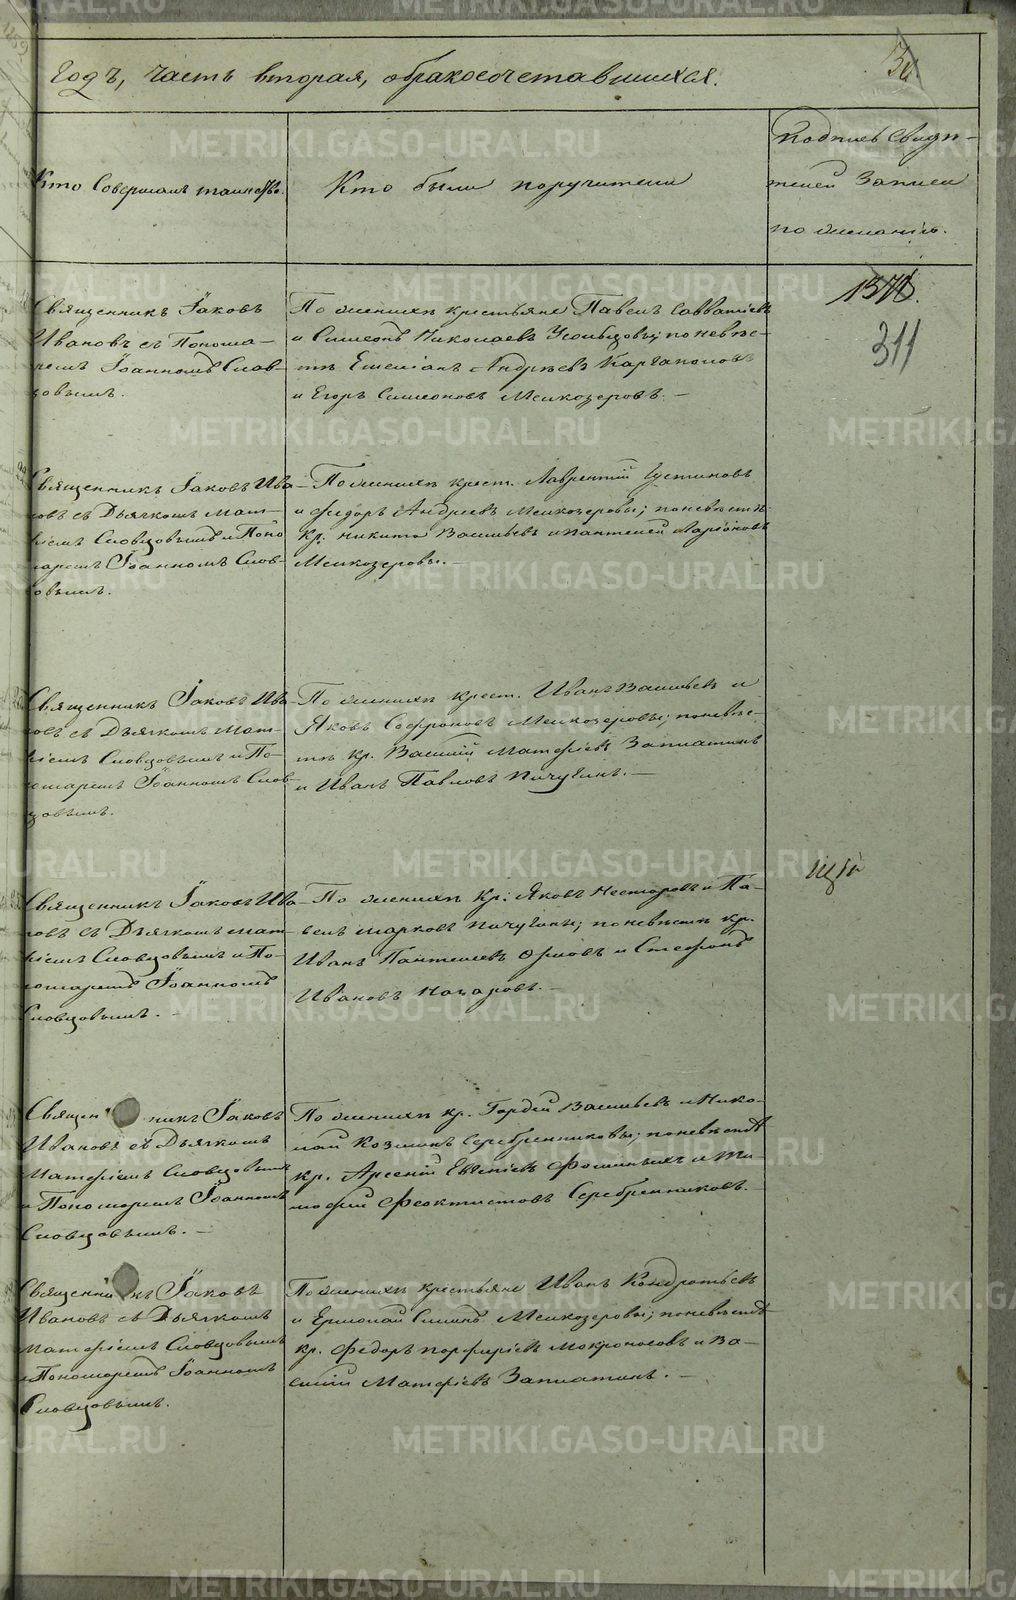 Годъ, часть вторая, о бракосочетавшихся.
Кто совершалъ таинство.
Кто были поручители
Подпись свидѣ-
телей записи
по желанію.
1370.
311
Священникъ Іаковъ
Ивановъ съ Понома-
ремъ Іоанномъ Слов-
цовымъ.
По женихѣ крестьяне Павелъ Савватіевъ
и Симеонъ Николаевъ; по невѣс-
тѣ Андреевъ Каргаполовъ
и Егоръ Симеоновъ Мелкозеровъ. —
Священникъ Іаковъ Ива-
новъ съ Дьячкомъ Мат-
ѳіемъ Словцовымъ и Поно
маремъ Іоанномъ Слов-
цовымъ.
По женихѣ крест. Лаврентій Іустиновъ
и Ѳедоръ Андреевъ Мелкозеровы; по невѣстѣ
кр. Никита Васильевъ и Пантелей Ларіоновъ
Мелкозеровы. —
Священникъ Іаковъ Ива-
новъ съ Дьячкомъ Мат-
ѳіемъ Словцовымъ и По-
номаремъ Іоанномъ Слов-
цовымъ.
По женихѣ крест. Иванъ Васильевъ и
Яковъ Софроновъ Мелкозеровы; по невѣс-
тѣ кр. Василій Матѳіевъ Заплатинъ
и Иванъ Павловъ Пичугинъ. —
Священникъ Іаковъ Ива-
новъ съ Дьячкомъ Мат-
ѳіемъ Словцовымъ и По-
номаремъ Іоанномъ
Словцовымъ. —
По женихѣ кр. Яковъ Несторовъ и Па-
велъ Марковъ Пичугины; по невѣстѣ кр.
Иванъ Пантелеевъ Орловъ и Стефанъ
Ивановъ Назаровъ. —
Священникъ Іаковъ
Ивановъ съ Дьячкомъ
Матѳіемъ Словцовымъ
и Пономаремъ Іоанномъ
Словцовымъ. —
По женихѣ кр. Гордей Васильевъ и Нико-
лай Козминъ Серебренниковы; по невѣстѣ
кр. Арсеній Евгеніевъ Фоминыхъ и Ти-
моѳей Ѳеоктистовъ Серебренниковъ. —
Священникъ Іаковъ
Ивановъ съ Дьячкомъ
Матѳіемъ Словцовымъ
и Пономаремъ Іоанномъ
Словцовымъ.
По женихѣ крестьяне Иванъ Кондратьевъ
и Ермолай Мелкозеровы; по невѣстѣ
кр. Ѳедоръ Порфирьевъ Мокроносовъ и Ва-
силій Матѳіевъ Заплатинъ. —
METRIKI.GASO-URAL.RU